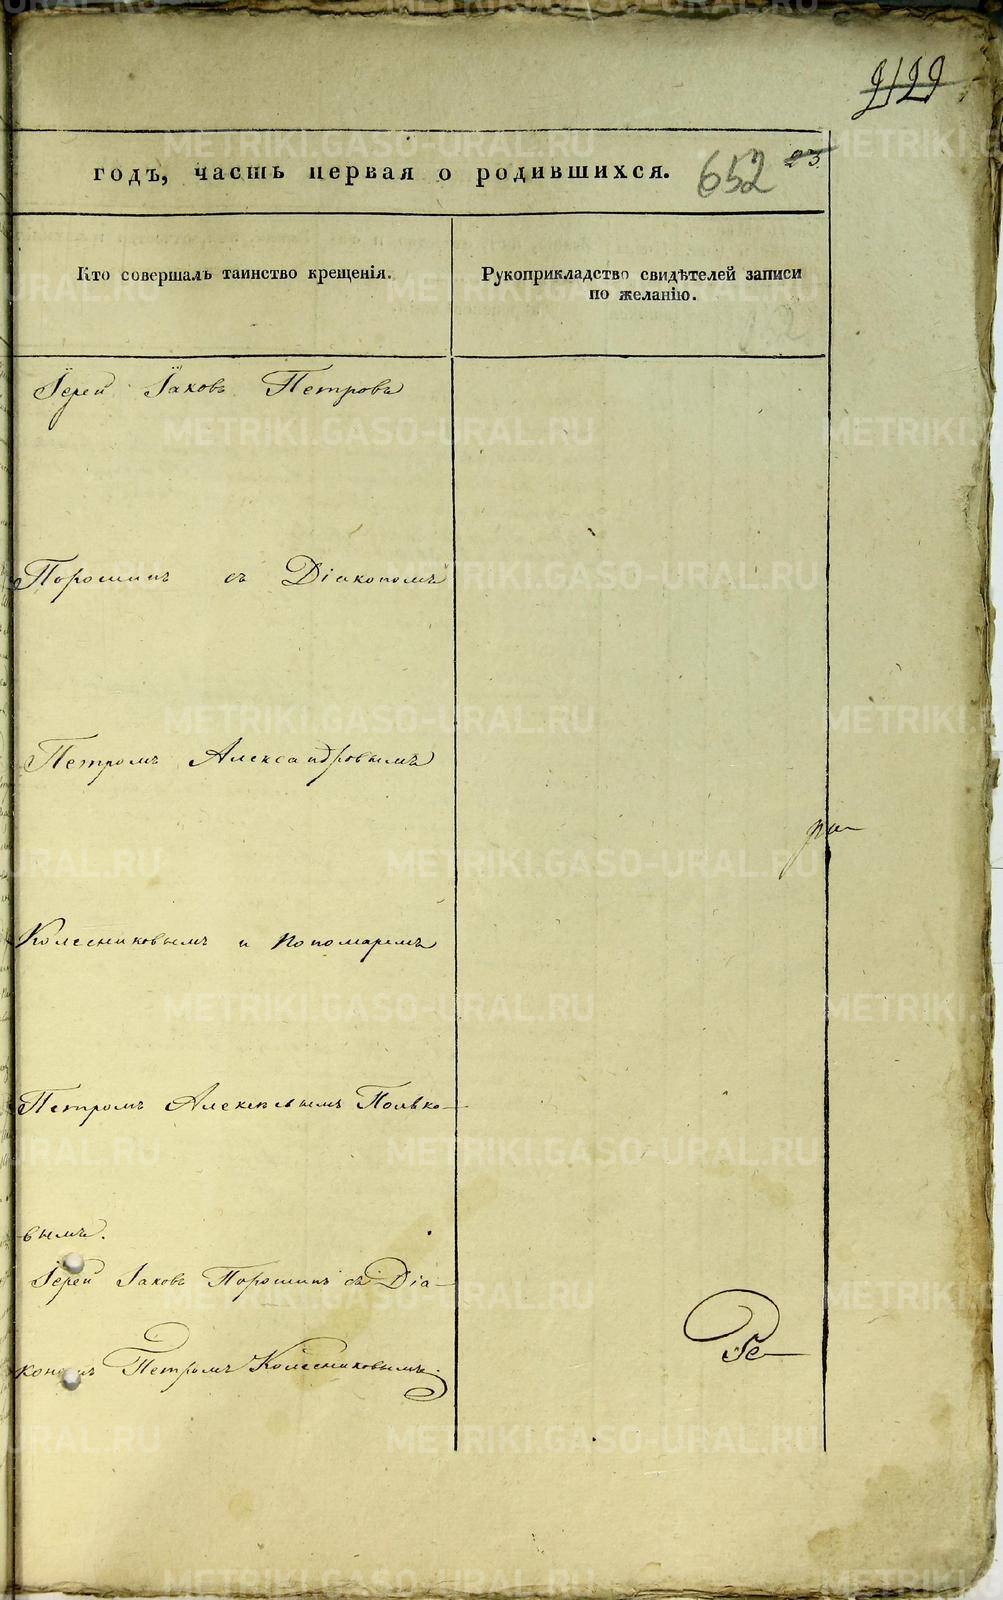 2129
годъ, часть первая о родившихся. 652 23
Кто совершалъ таинство крещенія.
Рукоприкладство свидѣтелей записи
по желанію.
Іерей Іаковъ Петровъ
Порошинъ съ Діакономъ
Петромъ Александровымъ
Колесниковымъ и пономаремъ
Петромъ Алексѣевымъ Попко-
вымъ.
Іерей Іаковъ Порошинъ съ Діа-
кономъ Петромъ Колесниковымъ.
METRIKI.GASO-URAL.RU